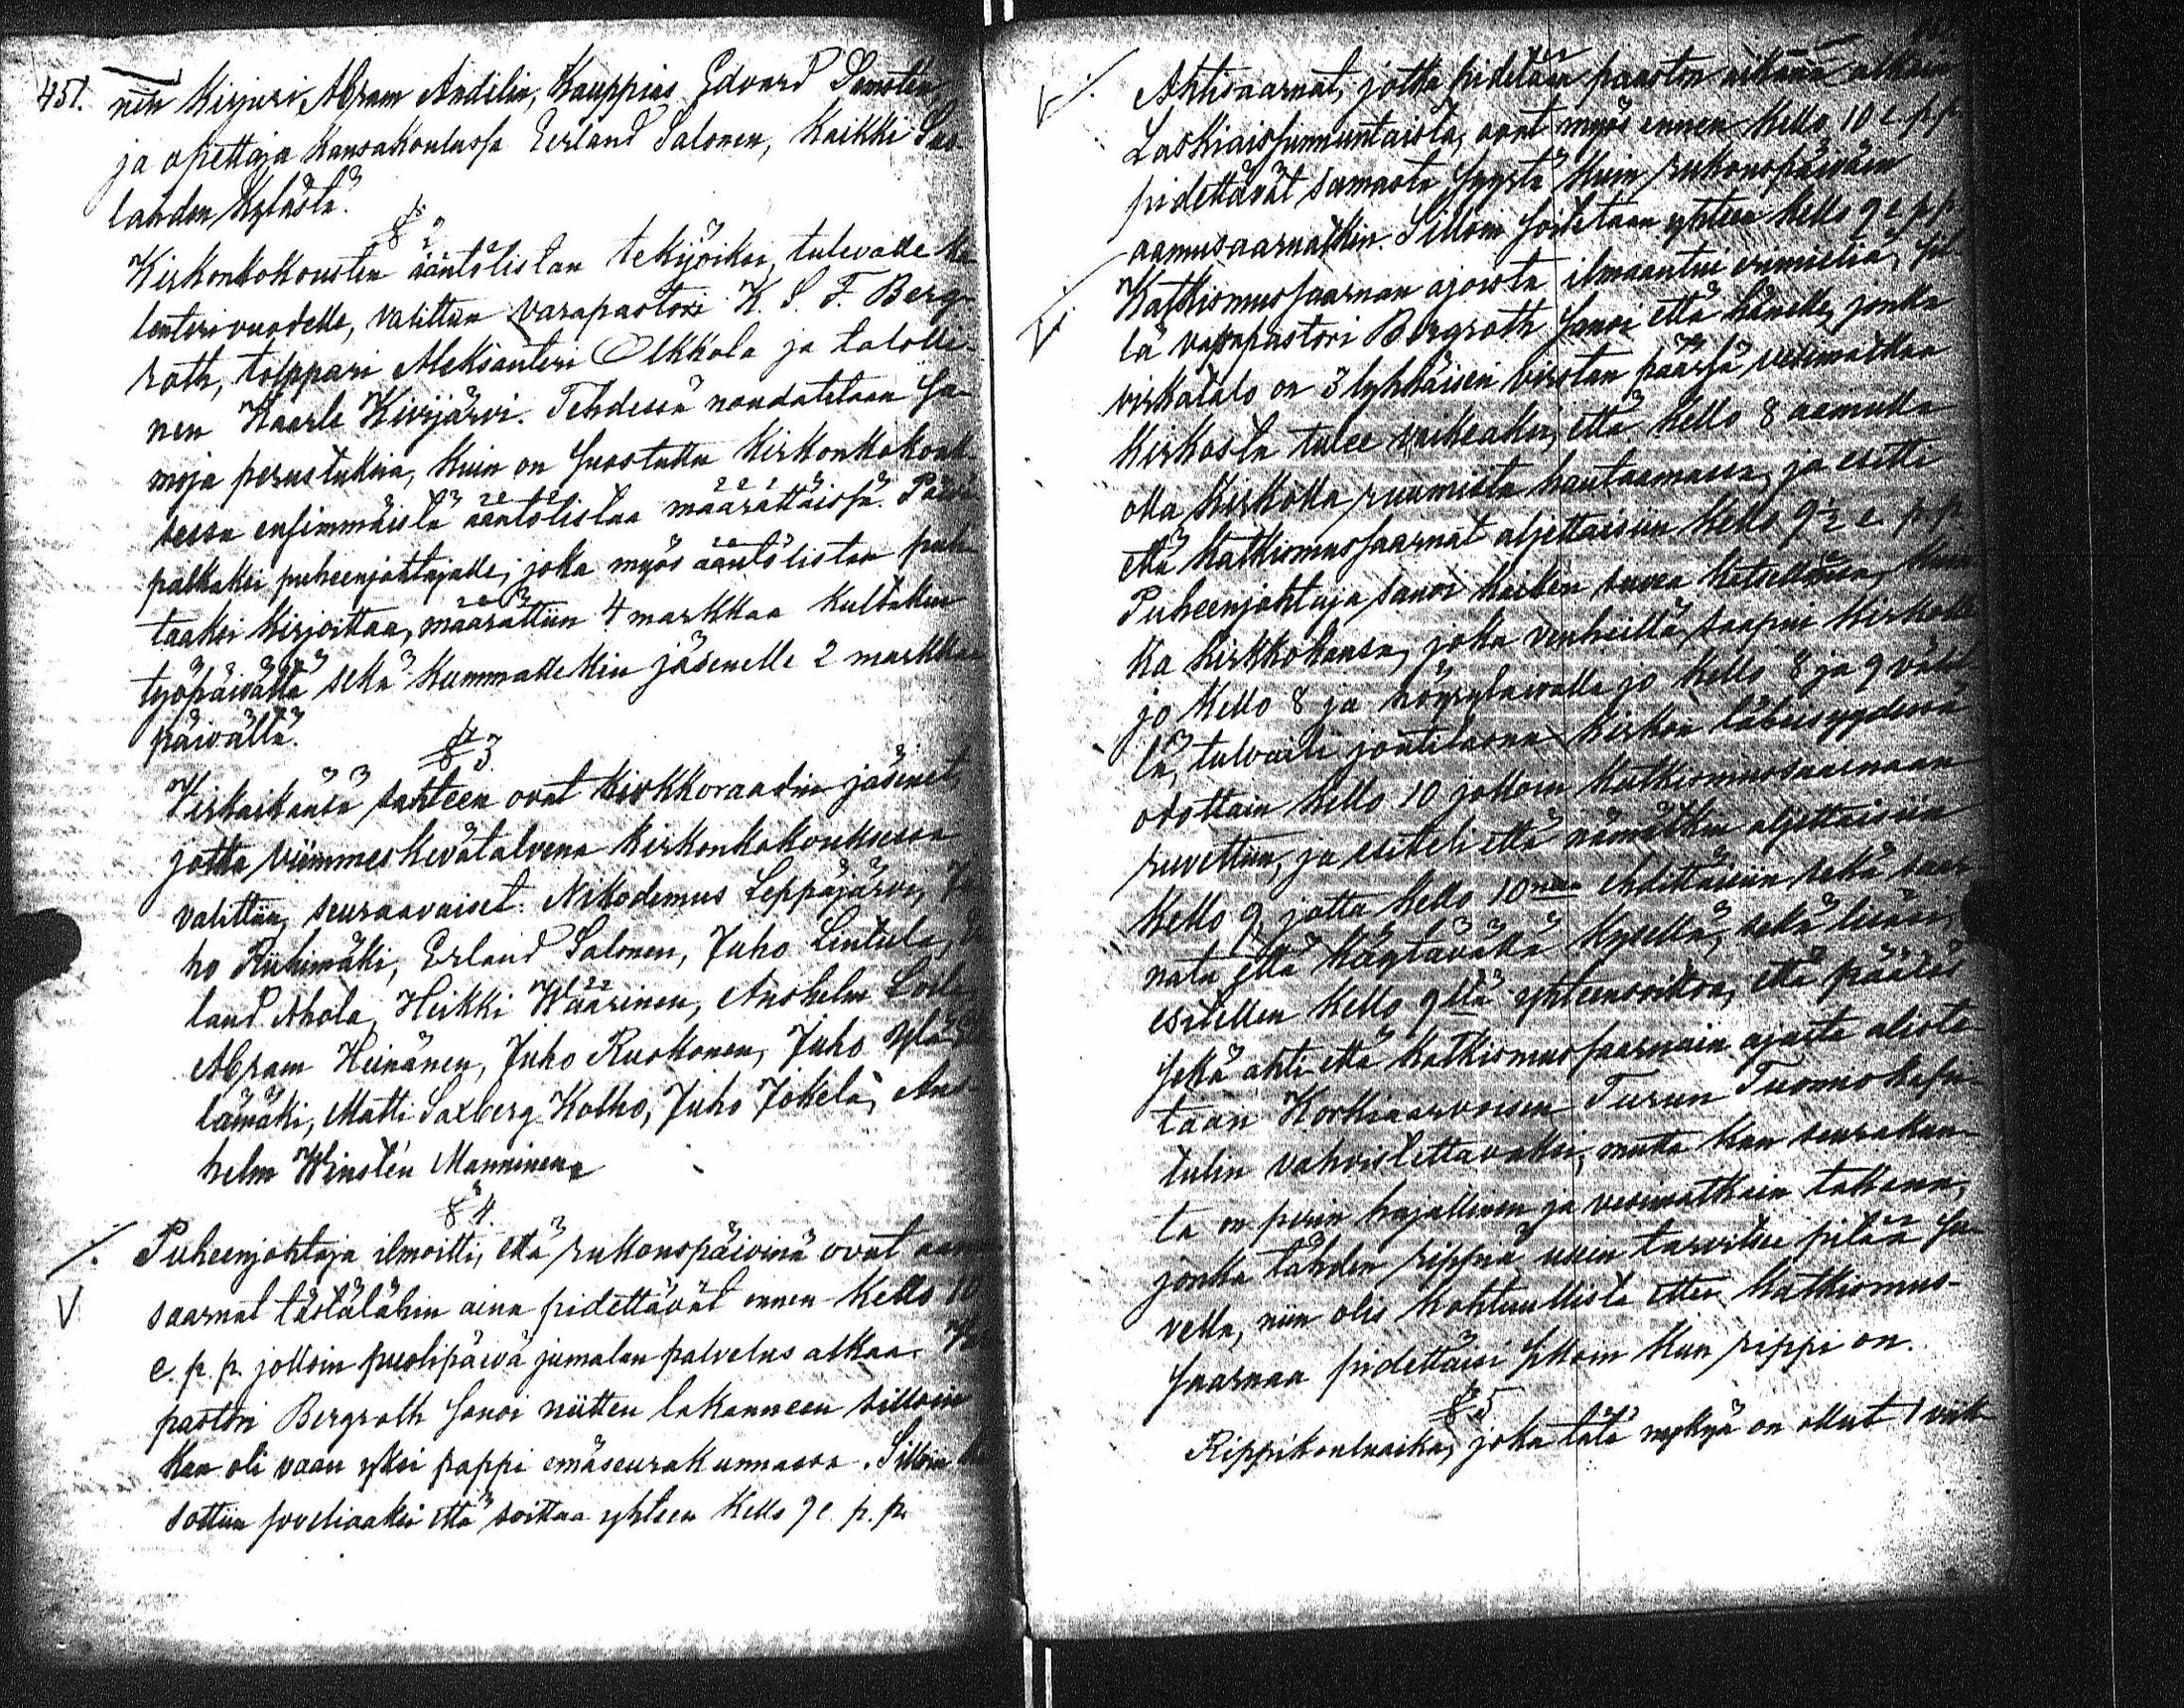 451. nin Kirjuri Abram Andilin, Kauppias Edvard
ja opettaja Kansakoulussa Erland Salonen, Kaikki Saa-
lahden Kylästä.
§ 2
Kirkonkokousten ääntölistan tekijöiksi, tulevalle ka-
lenterivuodelle, valittiin varapastori K. S. F. Berg-
roth, tolppari Aleksanteri Olkkola ja talolli-
nen Kaarle Kivijärvi. Tehdessä noudatetaan sa-
moja perustuksia, kuin on suostuttu Kirkonkokouk-
sessa ensimmäistä ääntölistaa määrättäissä.
palkaksi puheenjohtajalle, joka myös ääntölistan puh-
taaksi kirjoittaa, määrättiin 4 markkaa kultakin
työpäivältä sekä kummallekin jäsenelle 2 markkaa
päivältä.
§ 3
Virkaikänsä suhteen ovat kirkkoraadin jäsenet,
jotka viimmes kevätalvena kirkonkokouksessa
valittiin, seuraavaiset: Nikodemus Leppäjärvi, Ju-
ho Riihimäki, Erland Salonen, Juho Lintula,
land Ahola, Heikki Wäärinen, Anshelm
Abram Heinänen, Juho Ruokonen, Juho
lämäki, Matti Saxberg Kolho, Juho Jokela, Ans-
helm Winstén Manninen.
§ 4.
Puheenjohtaja ilmoitti, että rukouspäivinä ovat aamu
saarnat tästälähin aina pidettävät ennen Kello 10
e. p. p. jolloin puolipäivä jumalan palvelus alkaa.
pastori Bergroth sanoi niitten lakanneen silloin
kun oli vaan yksi pappi emäseurakunnassa. Silloin kat-
sottiin soveliaaksi että soittaa yhteen Kello 9 e. p. p.
Ahtisaarnat, jotka pidetään paaston aikana alkain
Laskiaissunnuntaista, ovat myös ennen Kello 10 e. p. p.
pidettävät samasta syystä kuin rukouspäiväin
aamusaarnatkin. Silloin soitetaan yhteen kello 9 e. p. p.
Katkismussaarnan ajoista ilmaantui erimieliä, sil-
lä varapastori Bergroth sanoi että hänelle, jonka
virkatalo on 3 lyhkäisen virstan päässä vesimatkan
Kirkosta tulee vaikeaksi, että kello 8 aamulla
olla Kirkolla ruumiita hautaamassa, ja esitti
että katkismussaarnat aljettaisiin Kello 9½ e. p. p.
Puheenjohtaja sanoi kaiken suvea katselleensa, kuin-
ka kirkkokansa, joka venheillä saapui Kirkolle
jo Kello 8 ja höyrylaivalla jo kello 8 ja 9 välil-
lä, joutilaana Kirkon läheisyydessä
odottain kello 10 jolloin katkismussaarnaan
ruvettiin, ja esitteli että nämätkin aljettaisiin
Kello 9, jotta kello 10neen ehdittäisiin sekä saar-
nata että käytävällä kysellä, sekä lisäsi,
esitellen kello 9ltä yhteensoittoa, että päätös
sekä ahti että katkismussaarnain ajasta aliste-
taan Korkiaarvoisen Turun Tuomiokapi-
tulin vahvistettavaksi, mutta kun seurakun-
ta on perin hajallinen ja vesimatkain takana,
jonka tähden rippiä usein tarvitsee pitää sa-
vella, niin olis kohtuullista ettei katkismus-
saarnaa pidettäisi silloin kun rippi on.
§ 5
Rippikouluaika, joka tätä nykyä on ollut 1 viik-